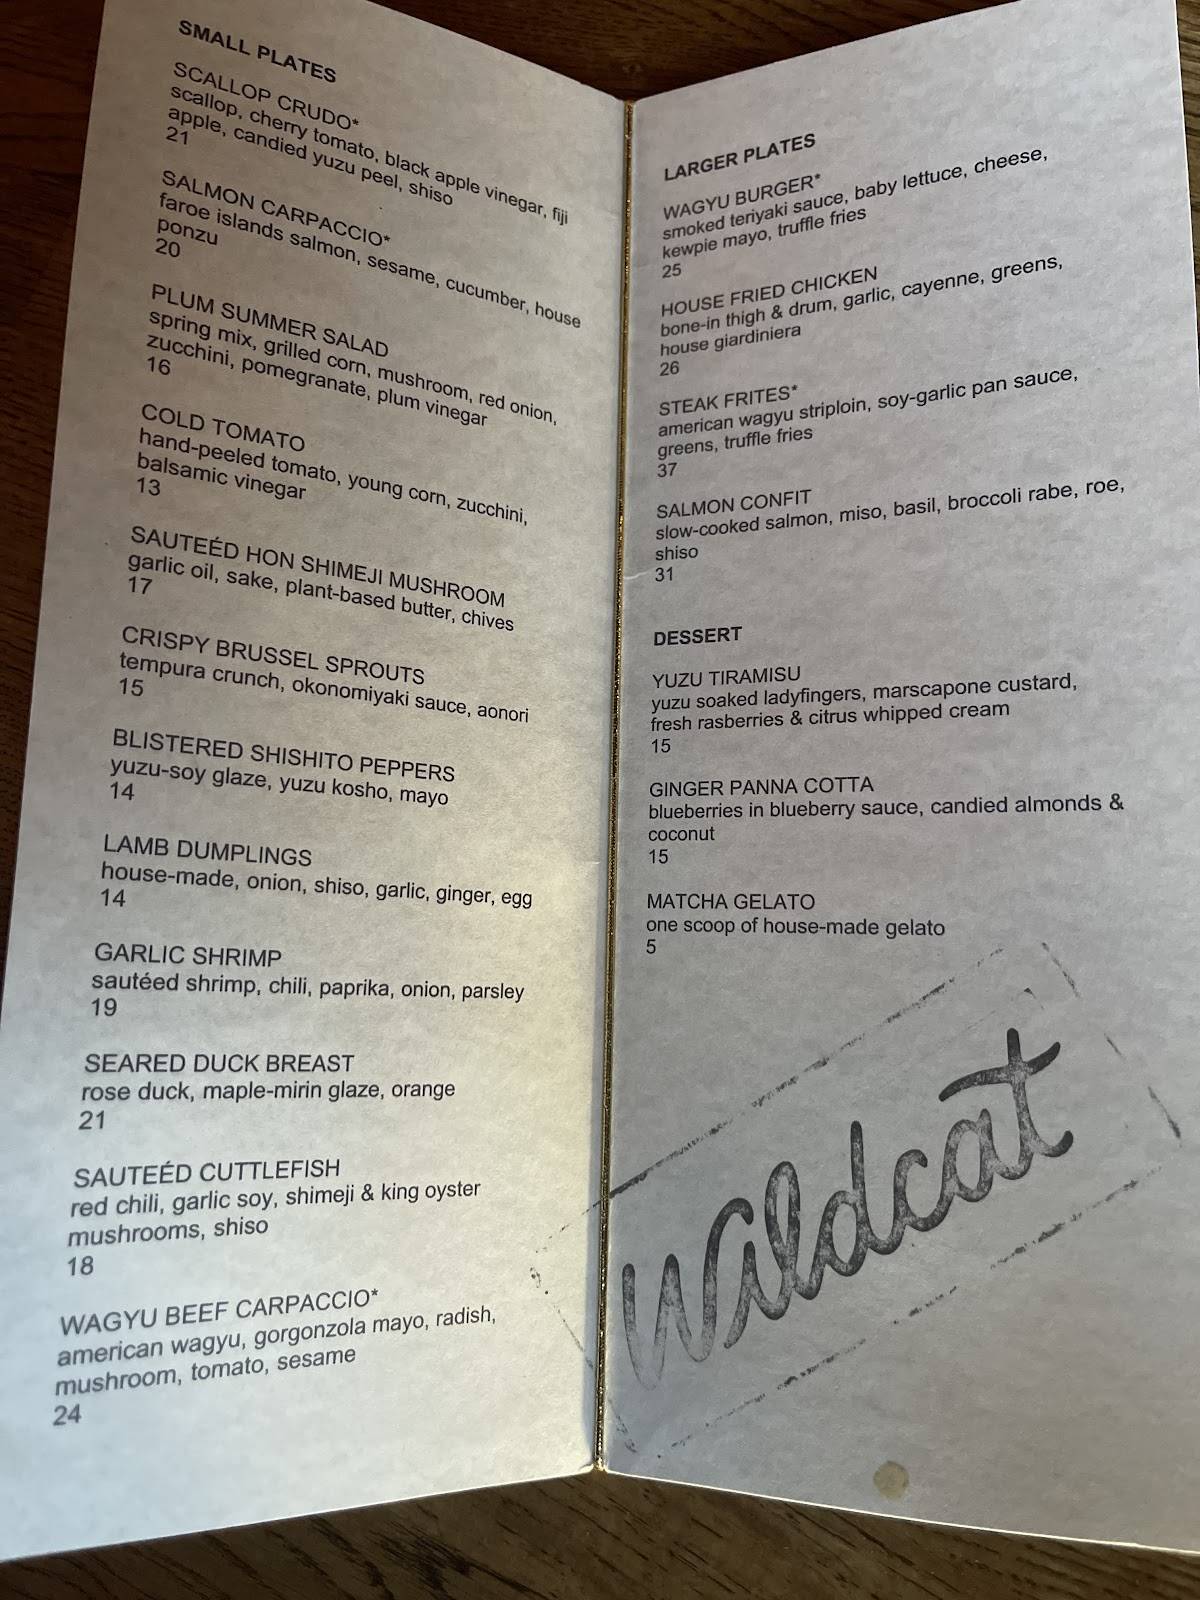 SMALL PLATES
SCALLOP CRUDO*
scallop, cherry tomato, black apple vinegar, fiji
apple, candied yuzu peel, shiso
21
SALMON CARPACCIO*
faroe islands salmon, sesame, cucumber, house
ponzu
20
PLUM SUMMER SALAD
spring mix, grilled corn, mushroom, red onion,
zucchini, pomegranate, plum vinegar
16
COLD TOMATO
hand-peeled tomato, young corn, zucchini,
balsamic vinegar
13
SAUTEÉD HON SHIMEJI MUSHROOM
garlic oil, sake, plant-based butter, chives
17
CRISPY BRUSSEL SPROUTS
tempura crunch, okonomiyaki sauce, aonori
15
BLISTERED SHISHITO PEPPERS
yuzu-soy glaze, yuzu kosho, mayo
14
LAMB DUMPLINGS
house-made, onion, shiso, garlic, ginger, egg
14
GARLIC SHRIMP
sautéed shrimp, chili, paprika, onion, parsley
19
SEARED DUCK BREAST
rose duck, maple-mirin glaze, orange
21
SAUTEÉD CUTTLEFISH
red chili, garlic soy, shimeji & king oyster
mushrooms, shiso
18
WAGYU BEEF CARPACCIO*
american wagyu, gorgonzola mayo, radish,
mushroom, tomato, sesame
24
LARGER PLATES
WAGYU BURGER*
smoked teriyaki sauce, baby lettuce, cheese,
kewpie mayo, truffle fries
25
HOUSE FRIED CHICKEN
bone-in thigh & drum, garlic, cayenne, greens,
house giardiniera
26
STEAK FRITES*
american wagyu striploin, soy-garlic pan sauce,
greens, truffle fries
37
SALMON CONFIT
slow-cooked salmon, miso, basil, broccoli rabe, roe,
shiso
31
DESSERT
YUZU TIRAMISU
yuzu soaked ladyfingers, marscapone custard,
fresh rasberries & citrus whipped cream
15
GINGER PANNA COTTA
blueberries in blueberry sauce, candied almonds &
coconut
15
MATCHA GELATO
one scoop of house-made gelato
5
Wildcat